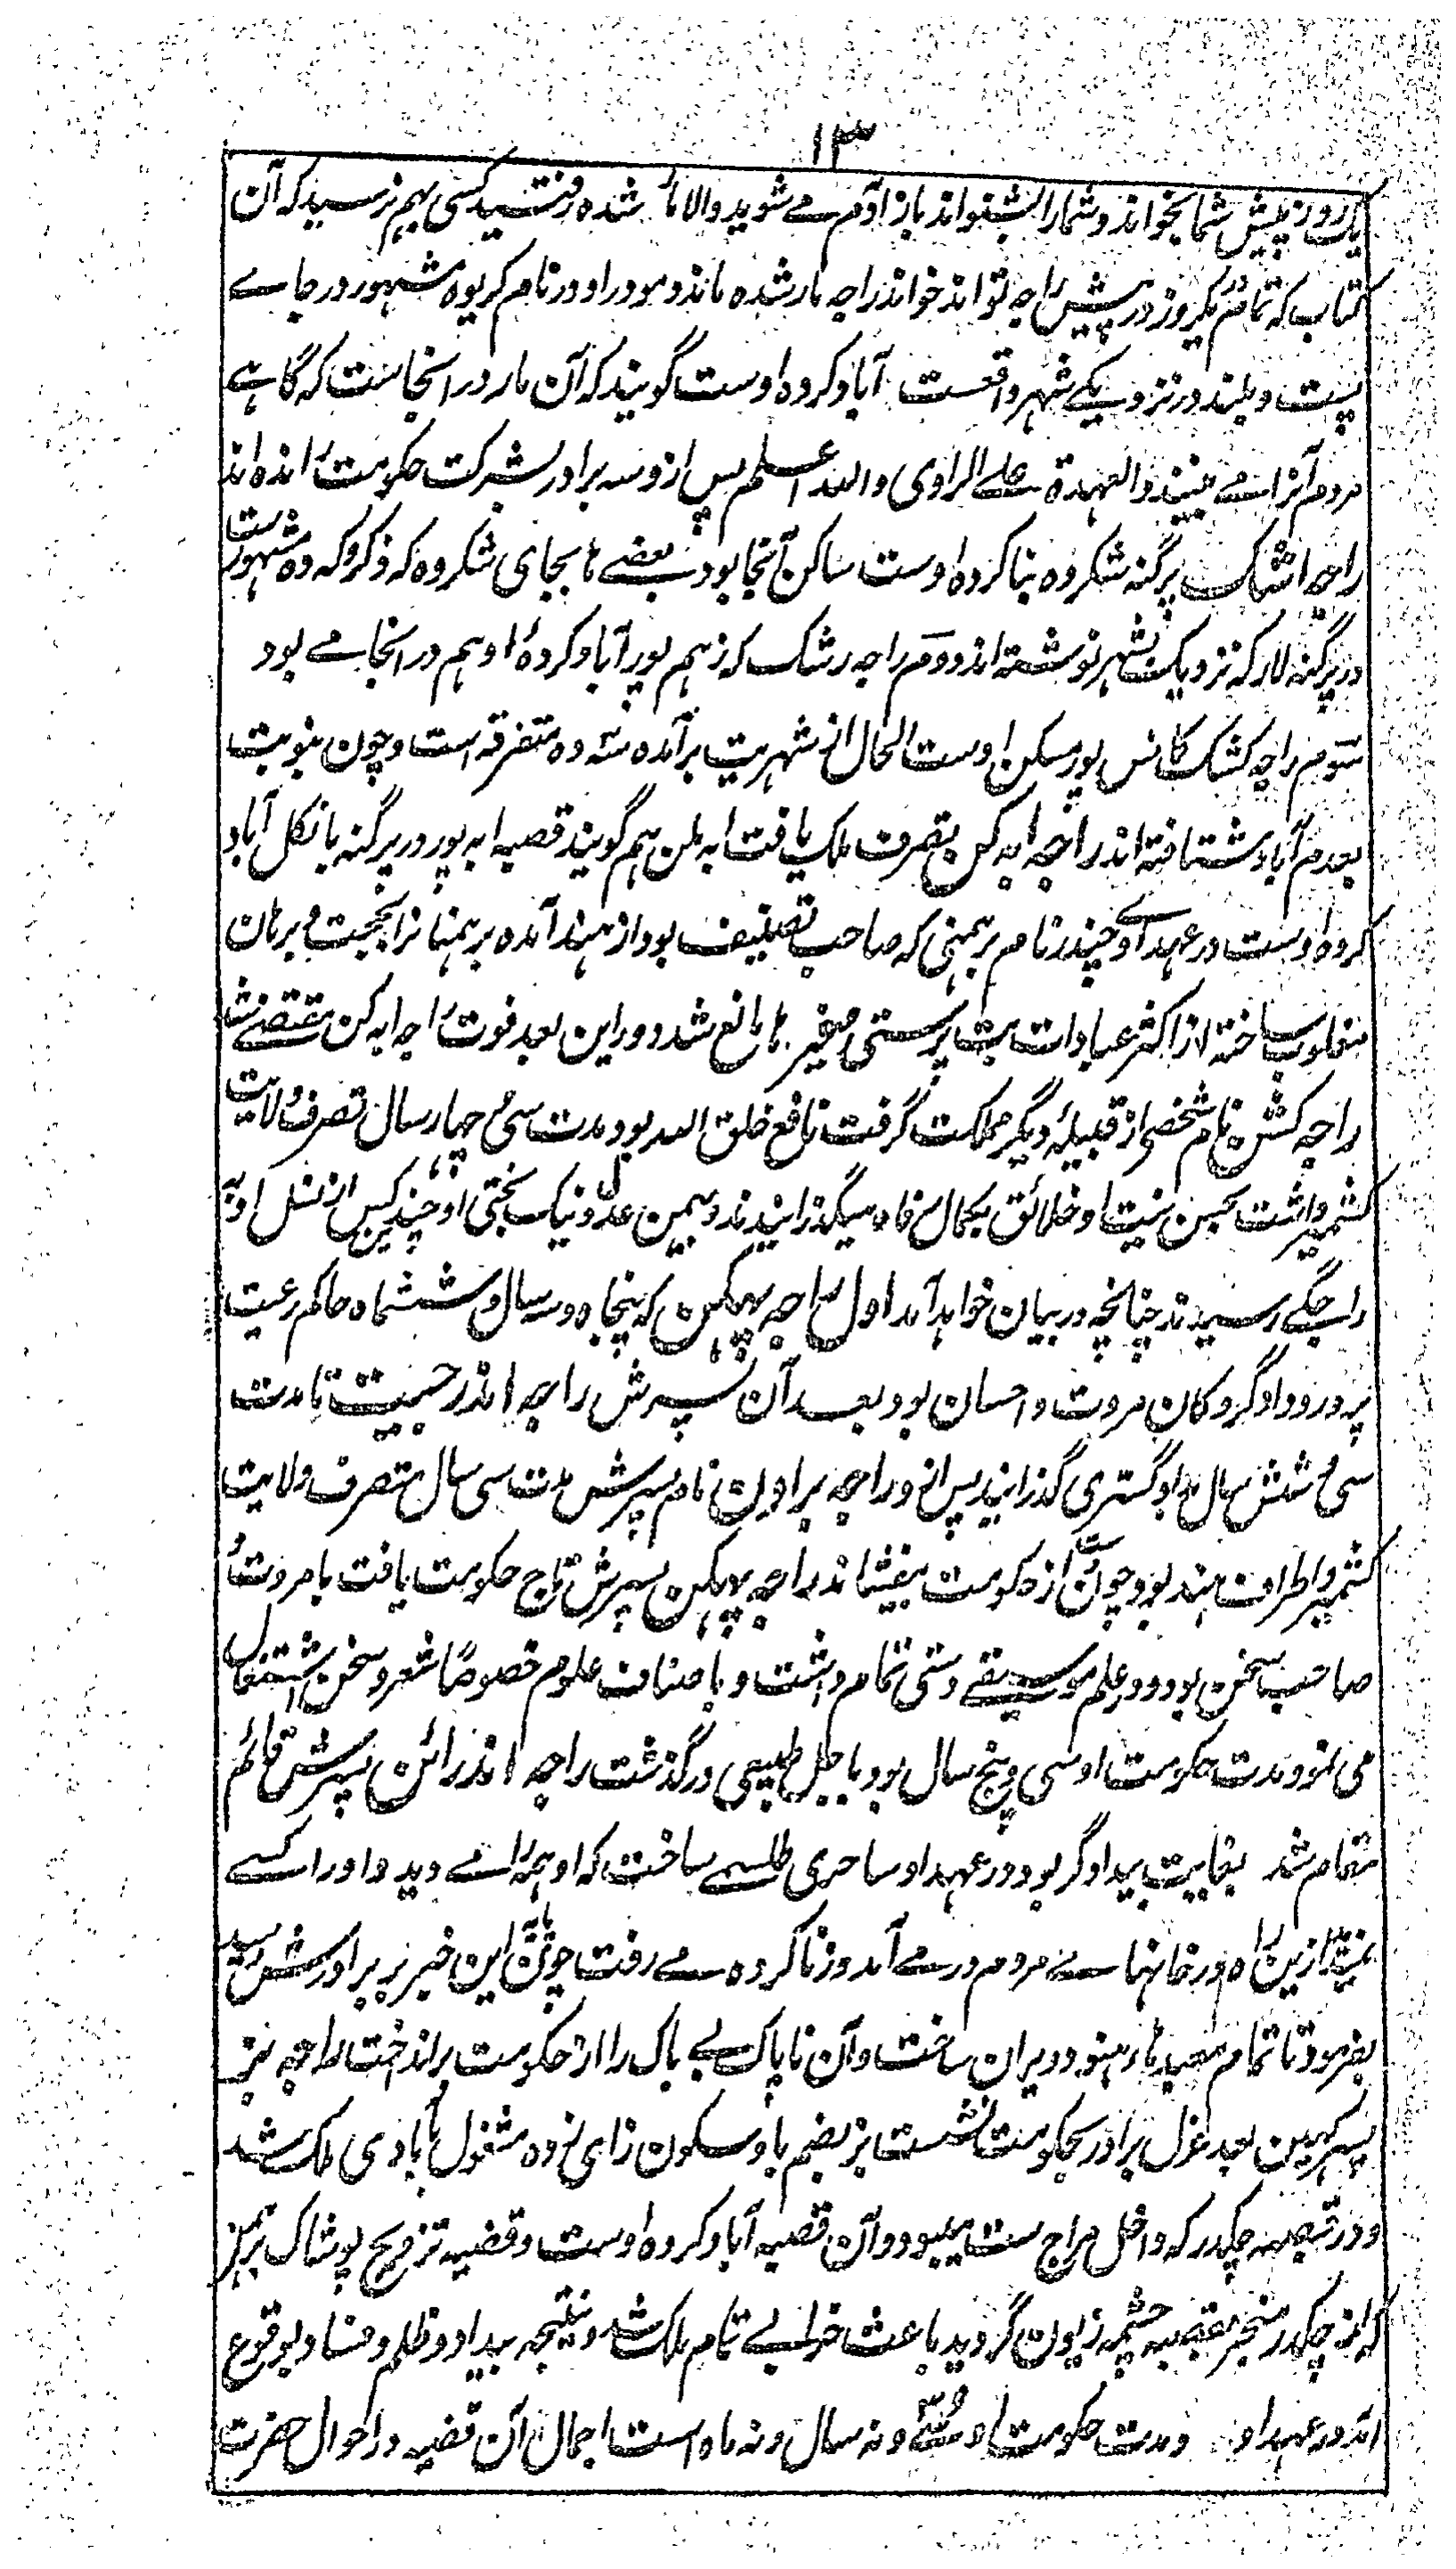 ۱۳
یک روز پیش شما بخواند و شما را بشنواند باز آدم مے شوید والا مار شده رفتید کسی بهم نرسید که آن
کتاب که تمام یکروز در پیش راجه تواند خواند راجه مار شده ماند و مودر او در نام کریوه مشهور در جاے
پست و بلند در نزدیکے شهر واقعست آباد کرده اوست گویند که آن مار در انجاست که گاہے
مردم آنرا مے بینند والعهدة علے الراوی والله اعلم پس از و سه برادر بشرکت حکومت رانده اند
راجه اشک پرگنه شکروه بنا کرده اوست ساکن آنجا بود بعضے ها بجای شکروه که ذکر و که ده مشهور ست
در پرگنه لار که نزدیک شهر نوشته اند دوم راجه رشک که زهم پور آباد کردهٔ او هم در انجا مے بود
سوم راجه کشک کانس پور مسکن اوست الحال از شهریت برآمده سه ده متفرقه است و چون بنوبت
بعدم آباد شتافته اند راجه ابه کن بتصرف ملک یافت ابه ملن هم گویند قصبه ابه پور در پرگنه بانکل آباد
کرده اوست در عهد او چندر نام برهمنی که صاحب تصنیف بود از هند آمده برهمنانرا بحجت و برهان
مغلوب ساخته از اکثر عبادات بت پرستی و غیر ها مانع شد دورا این بعد فوت راجه ابه کن مقتضے شد
راجه کشن نام شخصی از قبیلهٔ دیگر مملکت گرفت نافع خلق الله بود مدت سی و چهار سال تصرف ولایت
کشمیر داشت بحسن نیت او خلائق بکمال رفاه میگذرانیدند و بیمن عدل و نیک بختی او چندین کس از نسل او به
راجگے رسیدند چنانچه در بیان خواهد آمد اول راجه بهیکهن که پنجاه و سه سال و ششماه حاکم رعیت
پرور و دادگر و کان مروت و احسان بود بعد آن پسرش راجه اندر جیت تا مدت
سی و شش سال بدادگستری گذرانید پس از و راجه براون نام پسرش مدت سی سال متصرف ولایت
کشمیر و اطراف هند بود و چون دست از حکومت بیفشاند راجه بهیکهن پسرش تاج حکومت یافت با مروت و
صاحب سخن بود و در علم موسیقے دستی تمام داشت و باصناف علوم خصوصًا شعر و سخن اشتغال
می نمود مدت حکومت او سی و پنج سال بود باجل طبیعی درگذشت راجه اندرائن پسرش قائم
مقام شد بغایت بیدادگر بود و در عهد او ساحری طلسمے ساخت که او همه را مے دید و او را کسے
نمیدید ازین راه در خانهاے مردم در مے آمد و زنا کرده مے رفت چون این خبر بر برادرش رسید
بفرمود تا تمام معبد هاء هنود ویران ساخت و آن ناپاک بے باک را از حکومت برانداخت راجه نیز
پسر کهین بعد عزل برادر بحکومت نشست بزبضم باد سکون زای زده مشغول بآبادی ملک شد
و در قصبه چکدر که داخل مراج ست میبود و آن قصبه آباد کرده اوست و قضیه تزویج پوشاک برهمن
که از چکدر منجر بقصبه چشمه زیون گردید باعث خرابے تمام ملک شد و نتیجه بیداد و ظلم و فساد بوقوع
آمد در عهد او و مدت حکومت او سے و نه سال و نه ماه است اجمال آن قضیه در احوال حضرت